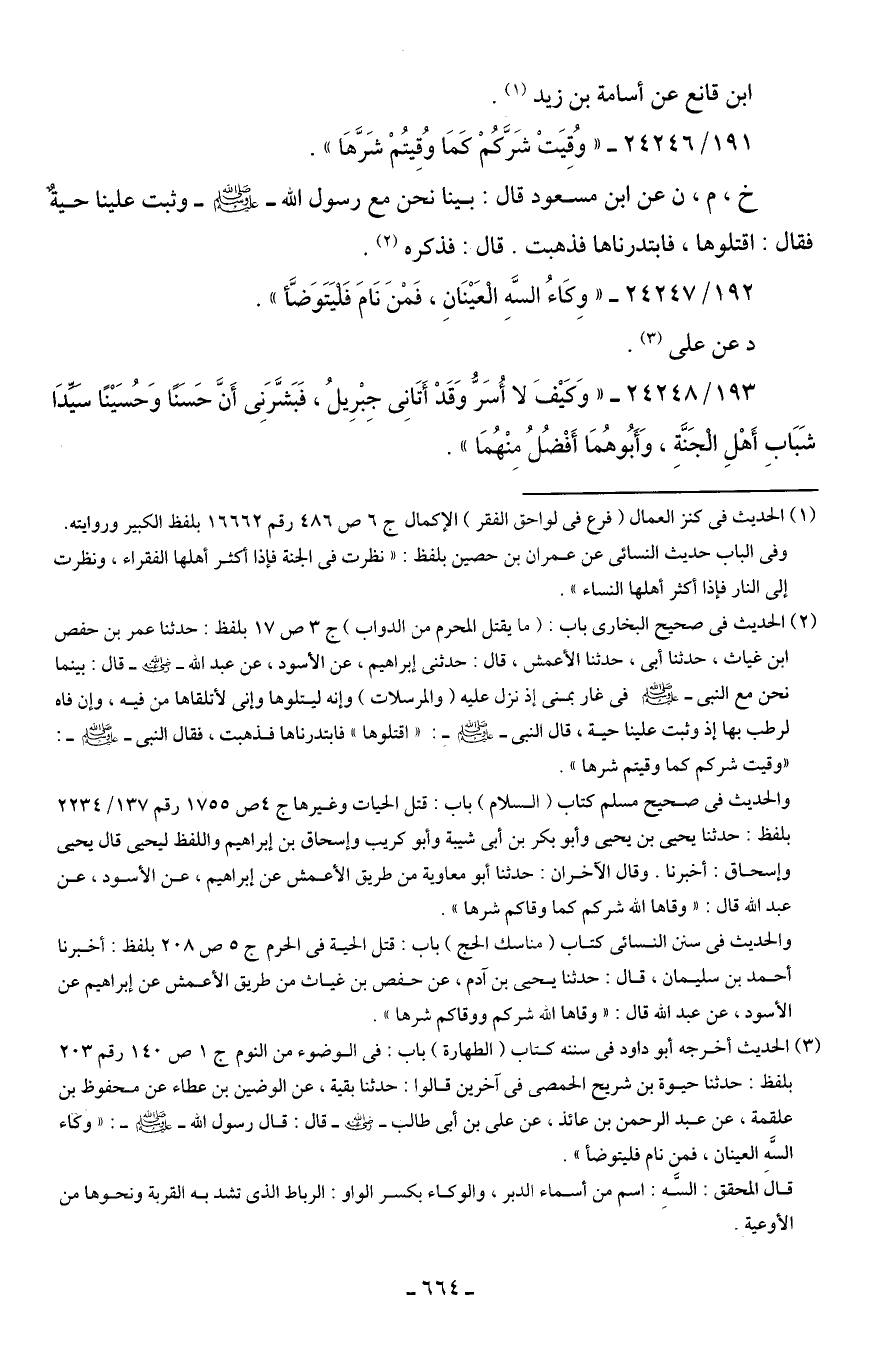 ابن قانع عن أسامة بن زيد (١) .
١٩١/ ٢٤٢٤٦ ـ « وُقِيَتْ شَرَّكُمْ كَمَا وُقِيتُمْ شَرَّهَا » .
خ ، م ، ن عن ابن مسعود قال : بينا نحن مع رسول الله ـ ﷺ ـ وثبت علينا حيةٌ
فقال : اقتلوها ، فابتدرناها فذهبت . قال : فذكره (٢) .
١٩٢/ ٢٤٢٤٧ ـ « وِكَاءُ السَّهِ الْعَيْنَانِ ، فَمْنَ نَامَ فَلْيَتَوَضَّأ » .
د عن على (٣) .
١٩٣/ ٢٤٢٤٨ ـ « وَكَيْفَ لا أُسَرُّ وَقَدْ أَتَانِى جِبْرِيلُ ، فَبَشَّرَنِى أَنَّ حَسَنًا وَحُسَيْنًا سَيِّدَا
شَبَابِ أَهْلِ الْجَنَّةِ ، وَأَبُوهُمَا أَفْضُلُ مِنْهُمَا » .
(١) الحديث فى كنز العمال ( فرع فى لواحق الفقر ) الإكمال ج ٦ ص ٤٨٦ رقم ١٦٦٦٢ بلفظ الكبير وروايته.
وفى الباب حديث النسائى عن عمران بن حصين بلفظ : « نظرت فى الجنة فإذا أكثر أهلها الفقراء ، ونظرت
إلى النار فإذا أكثر أهلها النساء » .
(٢) الحديث فى صحيح البخارى باب : ( ما يقتل المحرم من الدواب ) ج ٣ ص ١٧ بلفظ : حدثنا عمر بن حفص
ابن غياث ، حدثنا أبى ، حدثنا الأعمش ، قال : حدثنى إبراهيم ، عن الأسود ، عن عبد الله ـ رضي الله عنه ـ قال : بينما
نحن مع النبى ـ ﷺ فى غار بمنى إذ نزل عليه ( والمرسلات ) وإنه ليتلوها وإنى لأتلقاها من فيه ، وإن فاه
لرطب بها إذ وثبت علينا حية ، قال النبى ـ ﷺ ـ : « اقتلوها » فابتدرناها فذهبت ، فقال النبى ـ ﷺ ـ :
«وقيت شركم كما وقيتم شرها » .
والحديث فى صحيح مسلم كتاب ( السلام ) باب : قتل الحيات وغيرها ج ٤ص ١٧٥٥ رقم ١٣٧/ ٢٢٣٤
بلفظ : حدثنا يحيى بن يحيى وأبو بكر بن أبى شيبة وأبو كريب وإسحاق بن إبراهيم واللفظ ليحيى قال يحيى
وإسحاق : أخبرنا . وقال الآخران : حدثنا أبو معاوية من طريق الأعمش عن إبراهيم ، عن الأسود ، عن
عبد الله قال : « وقاها الله شركم كما وقاكم شرها » .
والحديث فى سنن النسائى كتاب ( مناسك الحج ) باب : قتل الحية فى الحرم ج ٥ ص ٢٠٨ بلفظ : أخبرنا
أحمد بن سليمان ، قال : حدثنا يحيى بن آدم ، عن حفص بن غياث من طريق الأعمش عن إبراهيم عن
الأسود ، عن عبد الله قال : « وقاها الله شركم ووقاكم شرها » .
(٣) الحديث أخرجه أبو داود فى سننه كتاب ( الطهارة ) باب : فى الوضوء من النوم ج ١ ص ١٤٠ رقم ٢٠٣
بلفظ : حدثنا حيوة بن شريح الحمصى فى آخرين قالوا : حدثنا بقية ، عن الوضين بن عطاء عن محفوظ بن
علقمة ، عن عبد الرحمن بن عائذ ، عن على بن أبى طالب ـ رضي الله عنه ـ قال : قال رسول الله ـ ﷺ ـ : « وكاء
السَّهِ العينان ، فمن نام فليتوضأ » .
قال المحقق : السَّهِ : اسم من أسماء الدبر ، والوكاء بكسر الواو : الرباط الذى تشد به القربة ونحوها من
الأوعية .
ـ ٦٦٤ ـ